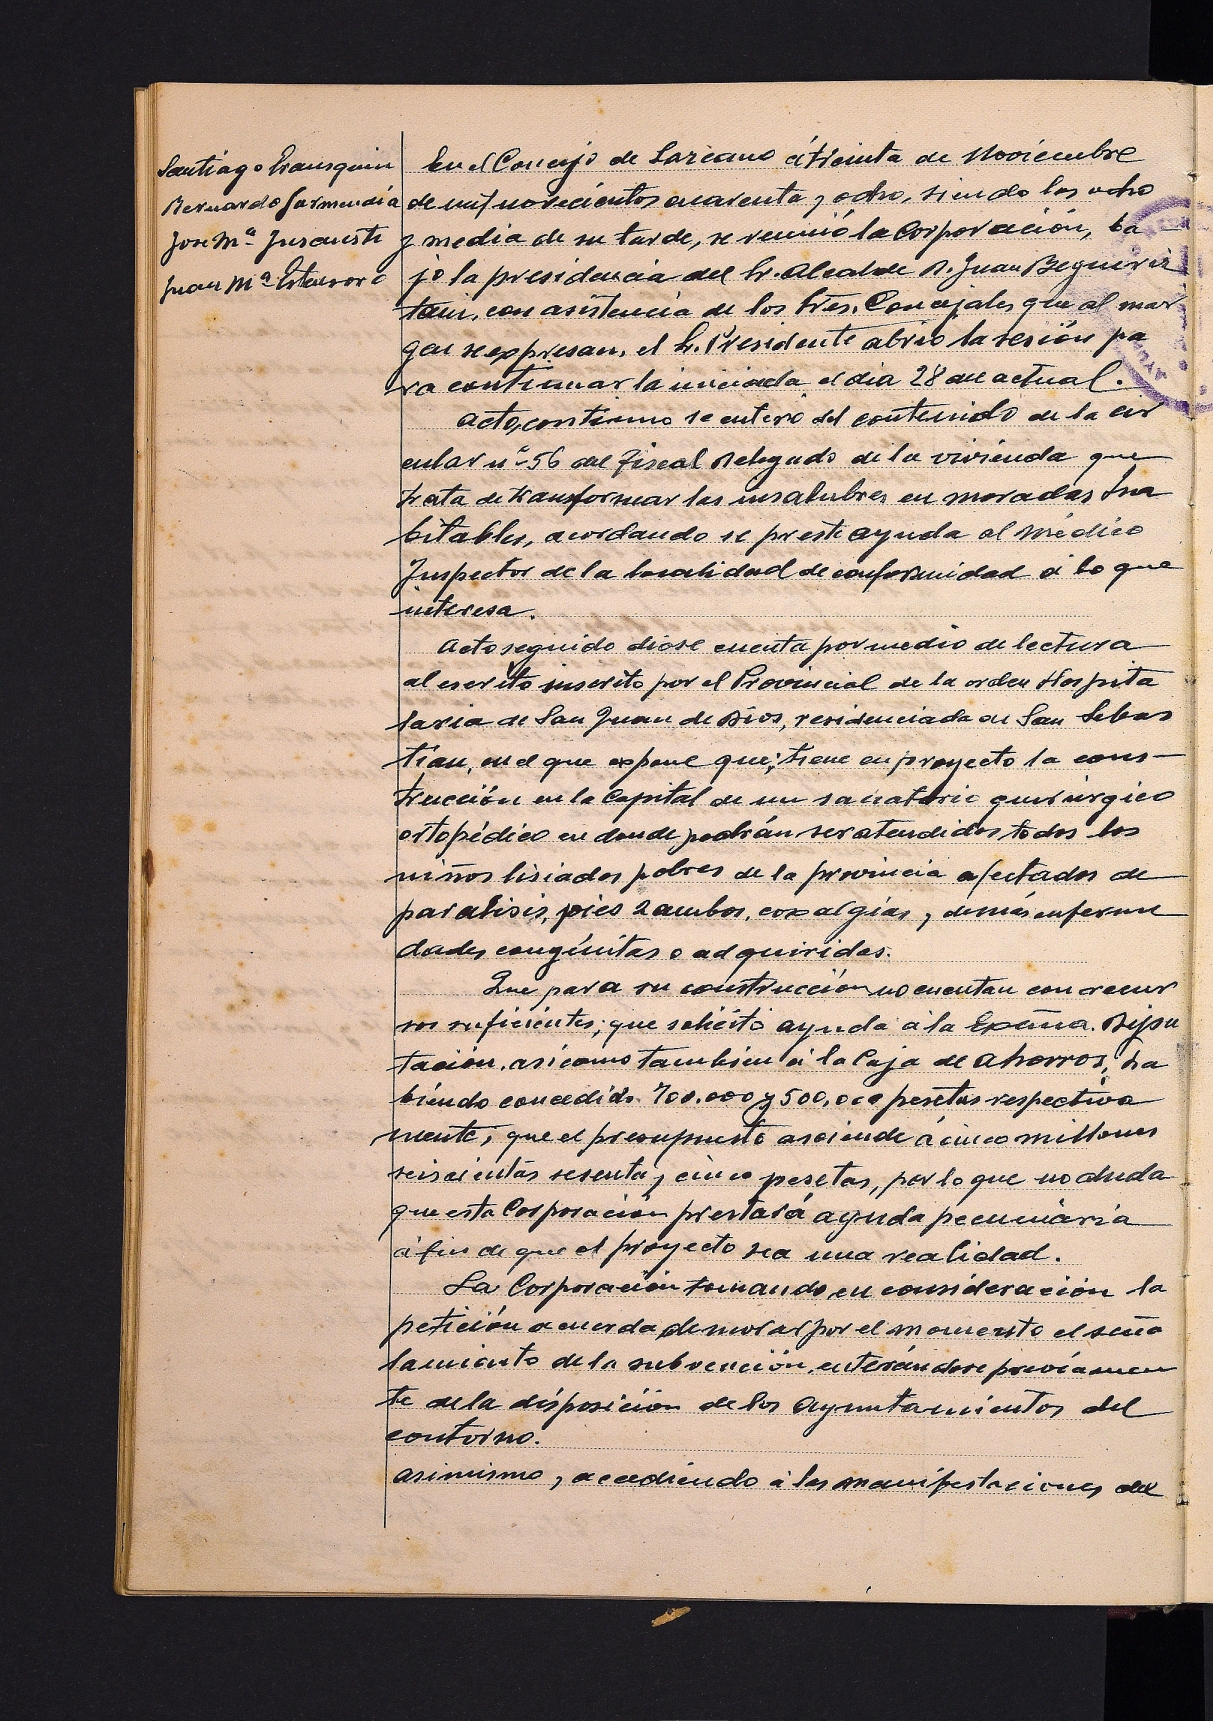 Santiago Irausquin
Bernardo Garmendia
Jose Mª Insausti
Juan Mª
En el Concejo de Lazcano á treinta de Noviembre
de mil novecientos cuarenta y ocho, siendo las ocho
y media de su tarde, se reunió la Corporación, ba
jo la presidencia del Sr. Alcalde D. Juan Beguiris
tain, con asistencia de los Sres. Concejales que al mar
gen se expresan, el Sr. Presidente abrió la sesión pa
ra continuar la iniciada el dia 28 del actual.
Acto, continuo se enteró del contenido de la cir
cular nº 56 del Fiscal Delegado de la vivienda que
trata de transformar las insalubres en moradas ha
bitables, acordando se preste ayuda al médico
Inspector de la localidad de conformidad á lo que
interesa.
Acto seguido diose cuenta por medio de lectura
al escrito inscrito por el Provincial de la orden Hospita
laria de San Juan de Dios, residenciada en San Sebas
tian, en el que expone que; tiene en proyecto la cons-
trucción en la Capital de un sanatorio quirúrgico
ortopédico en donde podrán ser atendidos todos los
niños lisiados pobres de la provincia afectados de
paralisis, pies zambos, coxalgias, y demás enferme
dades congénitas o adquiridas.
Que para su construcción no cuentan con recur
sos suficientes; que solicitó ayuda á la Excma. Dipu
tación, asi como tambien á la Caja de ahorros, ha
biendo concedido 700.000 y 500.000 pesetas respectiva
mente, que el presupuesto asciende á cinco millones
seiscientas sesenta y cinco pesetas, por lo que no duda
que esta Corporación prestará ayuda pecuniaria
á fin de que el proyecto sea una realidad.
La Corporación tomando en consideración la
petición acuerda demorar por el momento el seña
lamiento de la subvención, enterándose previamen
te de la disposición de los Ayuntamientos del
contorno.
Asimismo, accediendo á las manifestaciones del